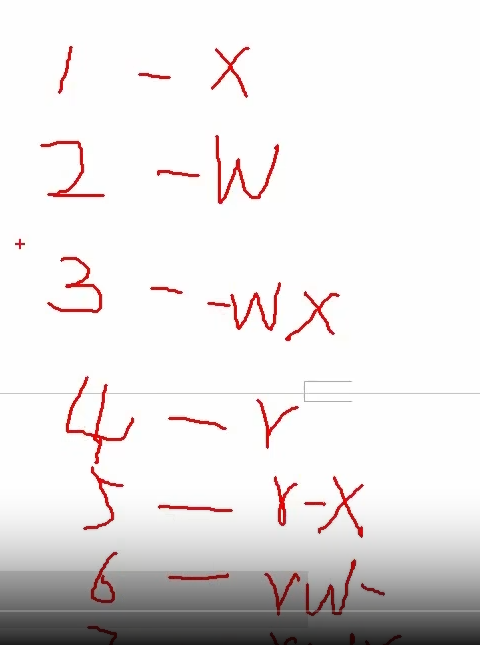 1 - x
2 - W
3 - -wx
4 - r
5 - r-x
6 - rw-